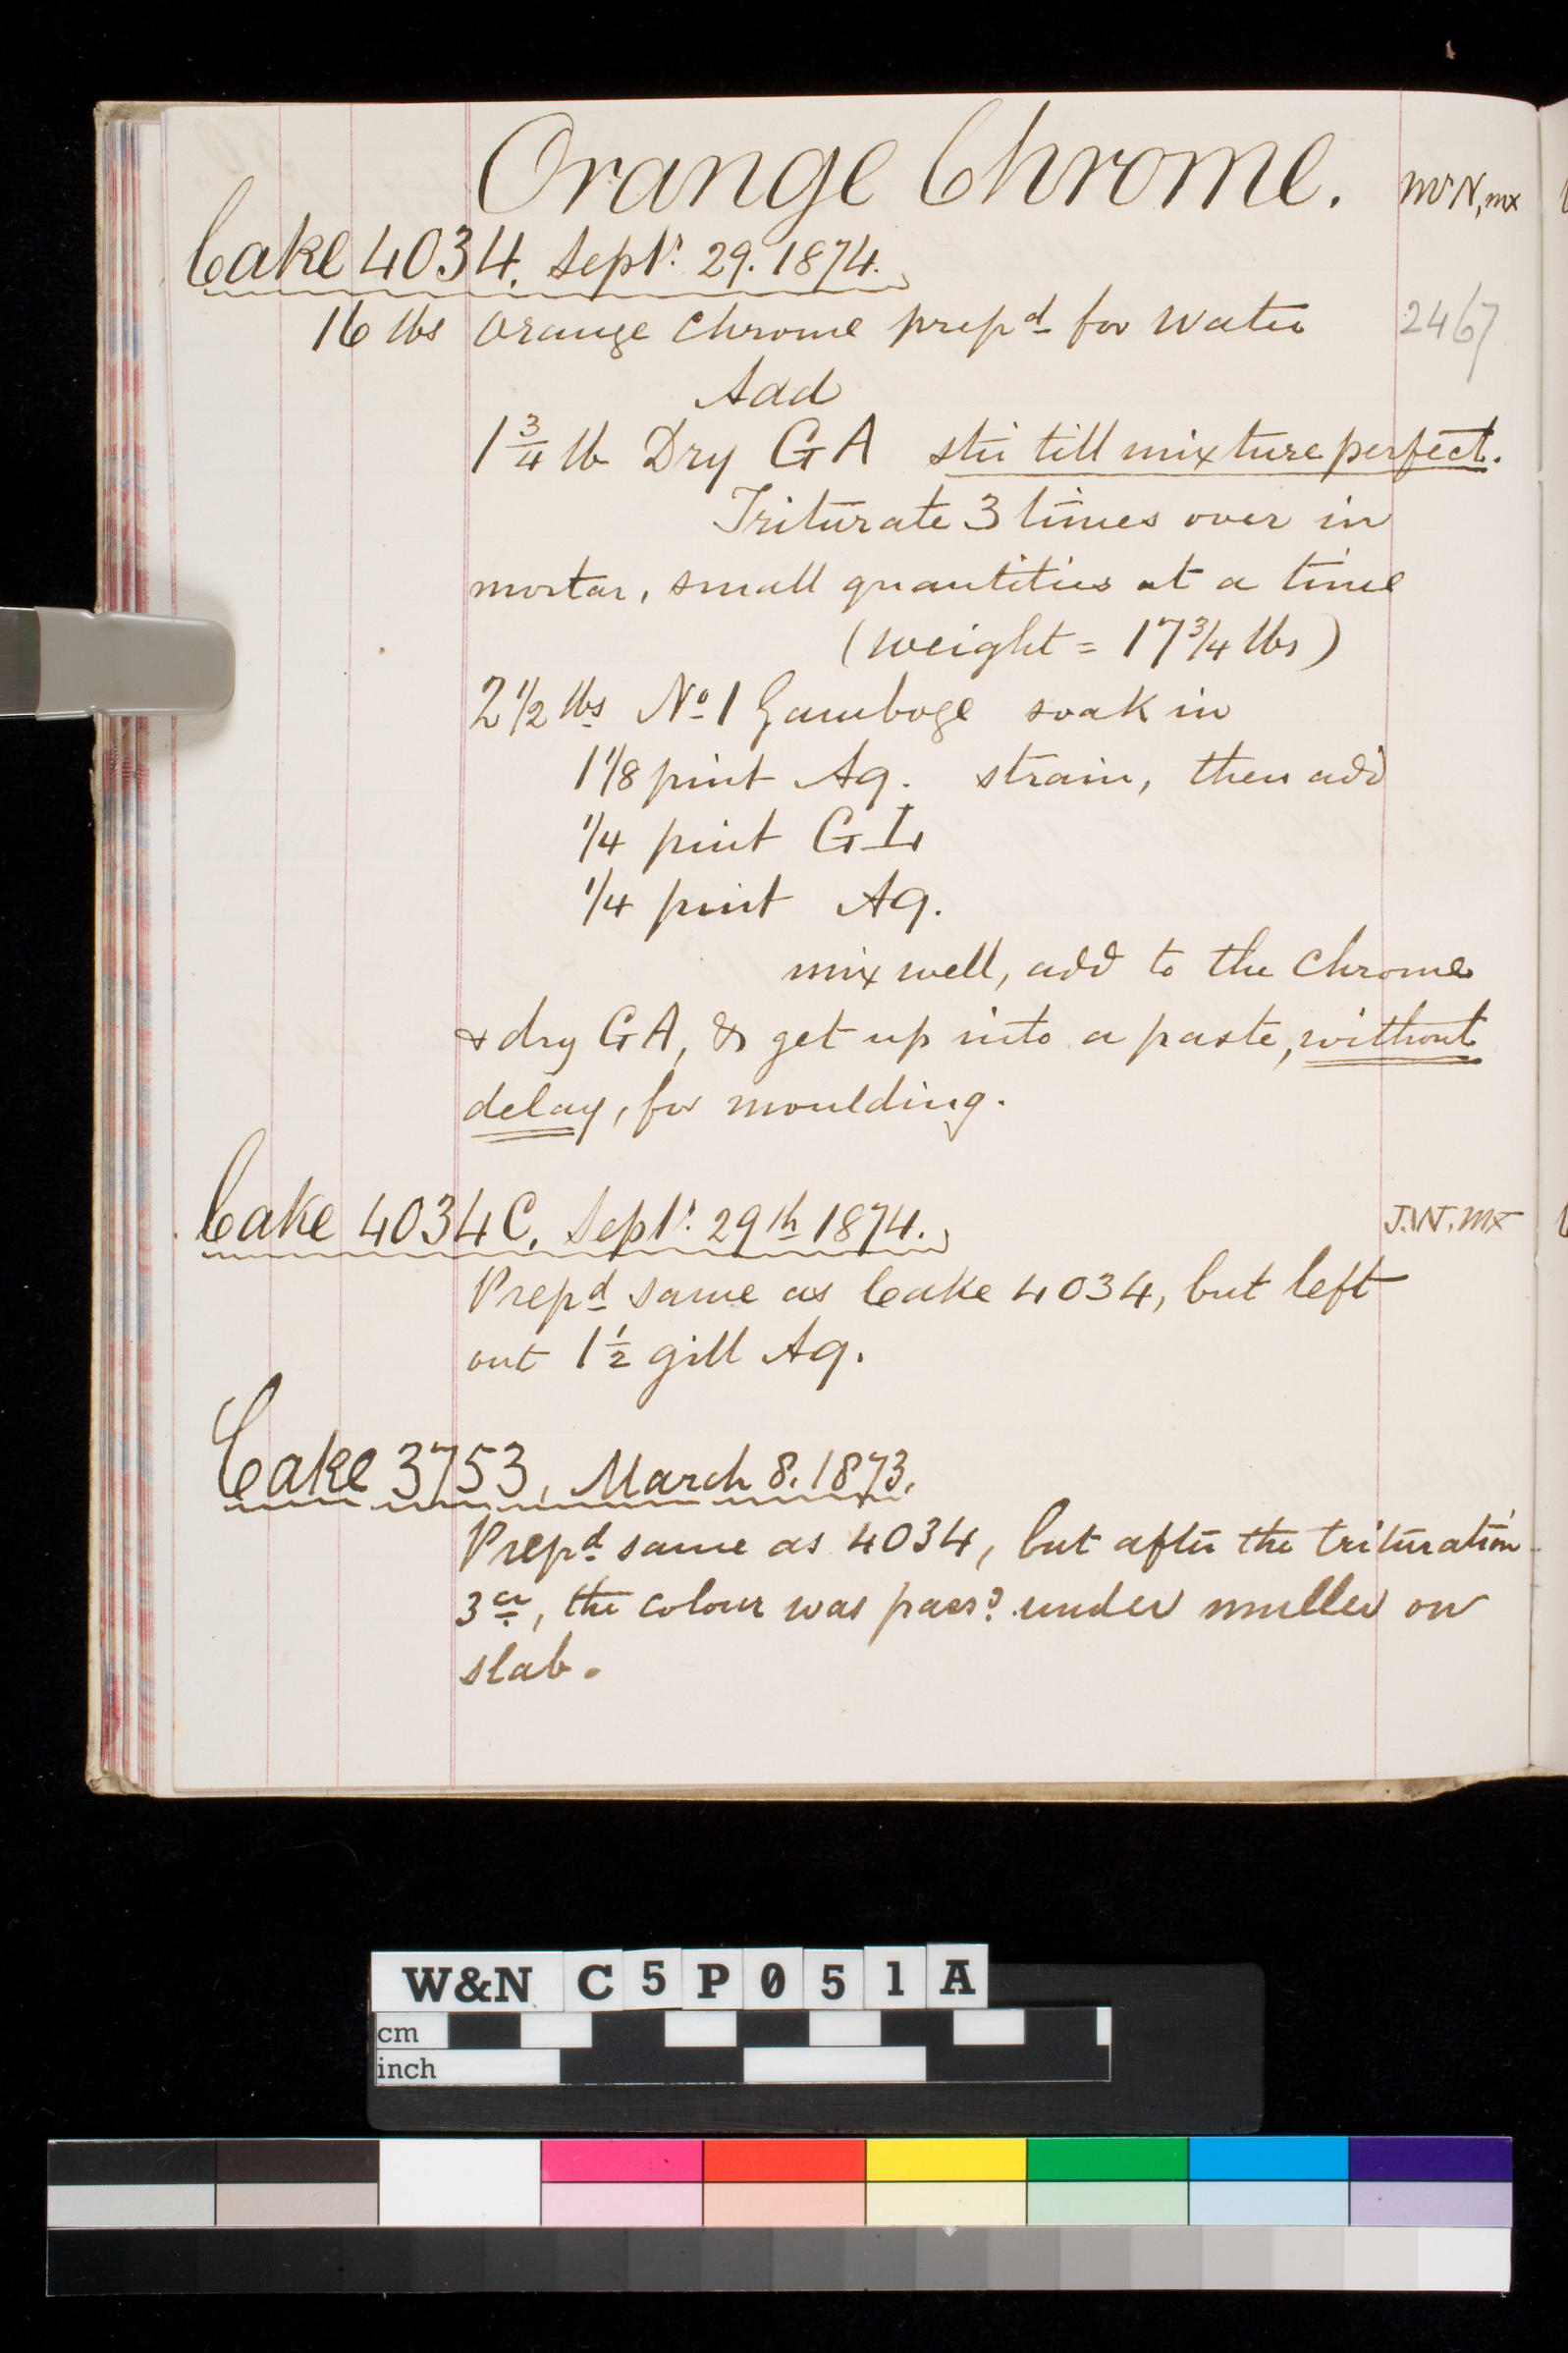 Orange Chrome.
Mr N, mx
Cake 4034. Septr. 29. 1874.
16 lbs Orange Chrome prepd for Water
2467
Add
1 3/4 lb Dry GA stir till mixture perfect.
Triturate 3 times over in
mortar, small quantities at a time
(weight = 17 3/4 lbs)
2 1/2 lbs No 1 Gamboge soak in
1 1/8 pint Aq. strain, then add
1/4 pint GL
1/4 pint Aq.
mix well, add to the Chrome
& dry GA, & get up into a paste, without
delay, for moulding.
Cake 4034C. Septr. 29th 1874.
J.W. mx
Prepd same as Cake 4034, but left
out 1 1/2 gill Aq.
Cake 3753, March 8. 1873.
Prepd same as 4034, but after the trituration
3ce, the colour was passd under muller on
slab.
W&N C5P051A
cm
inch